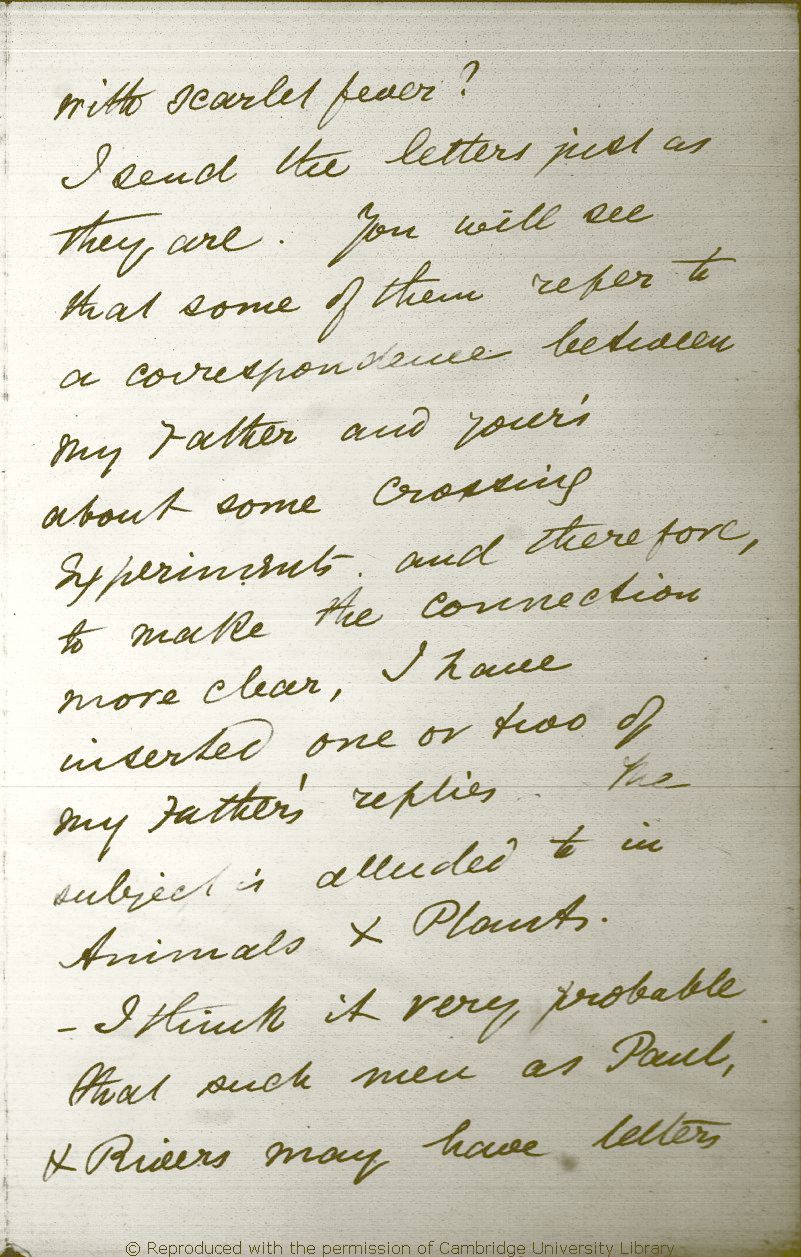 with scarlet fever?
I send the letters just as
they are. You will see
that some of them refer to
a correspondence between
my Father and your's
about some crossing
experiments. and therefore,
to make the connection
more clear, I have
inserted one or two of
my Father's replies. The
subject is alluded to in
Animals & Plants.
- I think it very probable
that such men as Paul,
& Rivers may have letters
© Reproduced with the permission of Cambridge University Library